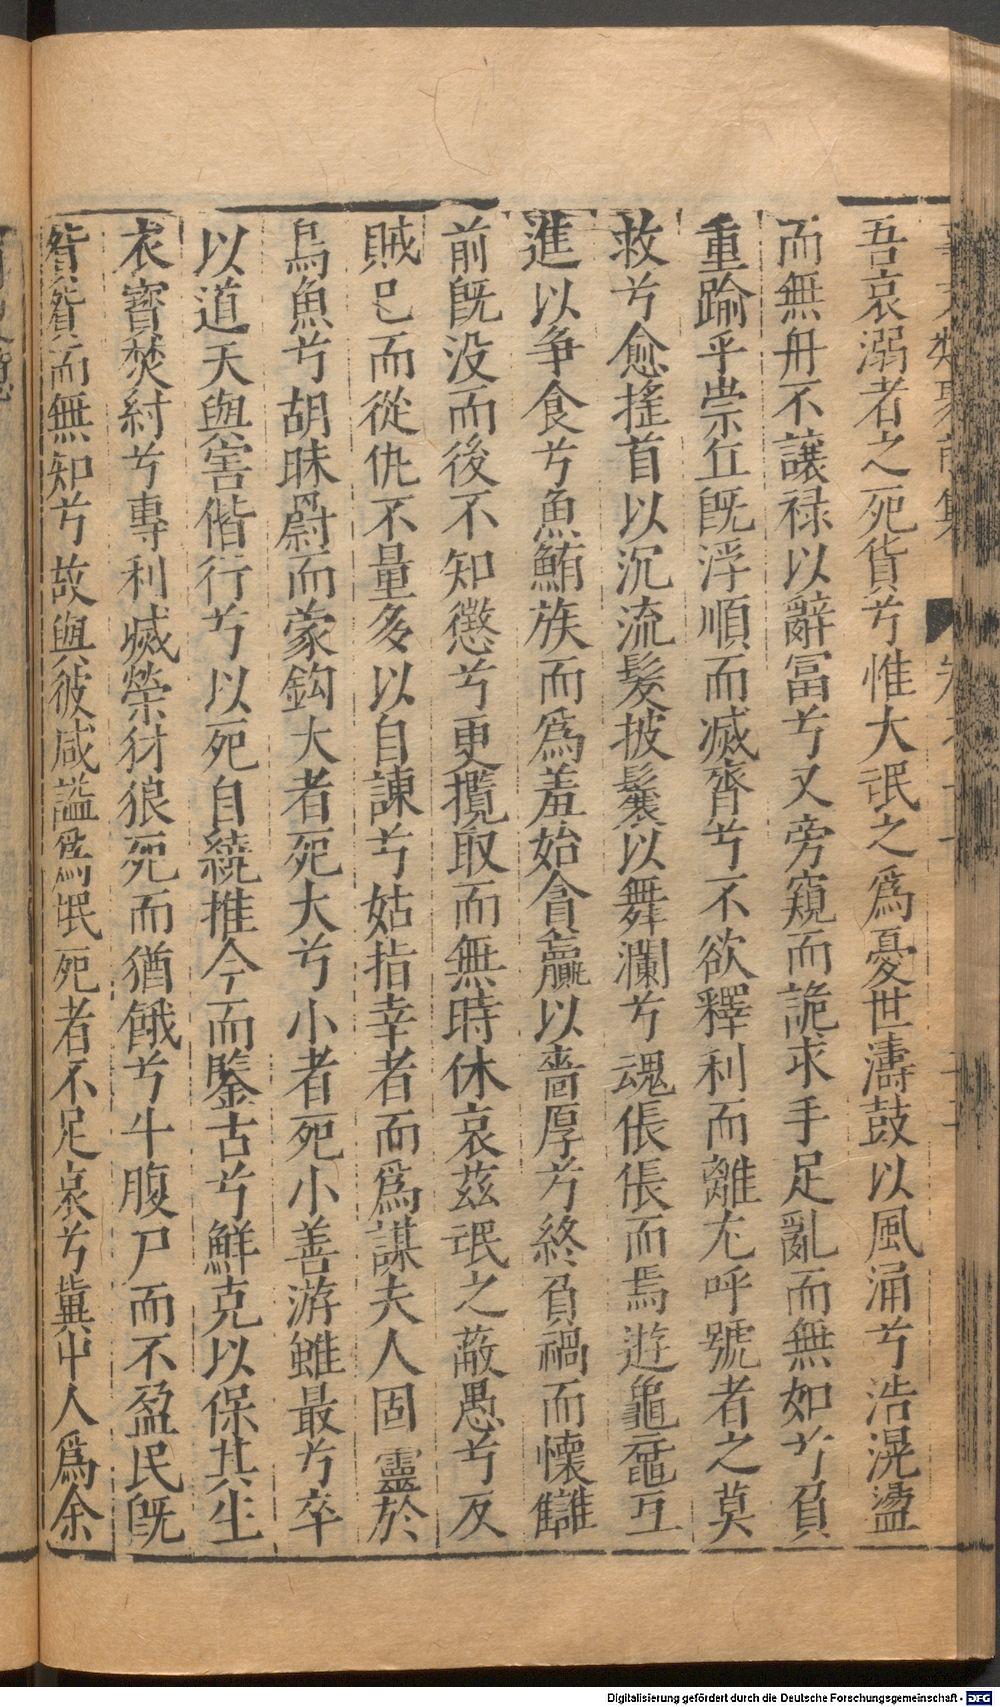 吾哀溺者之死貨兮惟大氓之爲憂世濤鼓以風涌兮浩滉盪
而無舟不讓祿以辭冨兮又旁窺而詭求手足亂而無如兮負
重踰乎崇丘旣浮頤而滅膂兮不欲釋利而離尤呼號者之莫
救兮愈搖首以沉流髮披鬟以舞瀾兮魂倀倀而焉遊龜黿互
進以争食兮魚鮪族而爲羞始貪贏以嗇厚兮終負禍而懷讎
前旣没而後不知懲兮更攬取而無時休哀茲氓之蔽愚兮反
賊已而從仇不量多以自諫兮姑指幸者而爲謀夫人固靈於
鳥魚兮胡昧罻而蒙鈎大者死大兮小者死小善游雖最兮卒
以道夭與害偕行兮以死自繞推今而鑒古兮鮮克以保其生
衣寶焚紂兮專利滅榮豺狼死而猶餓兮牛腹尸而不盈民旣
貿貿而無知兮故與彼咸謚爲氓死者不足哀兮冀中人爲余
Digitalisierung gefördert durch die Deutsche Forschungsgemeinschaft - DFG